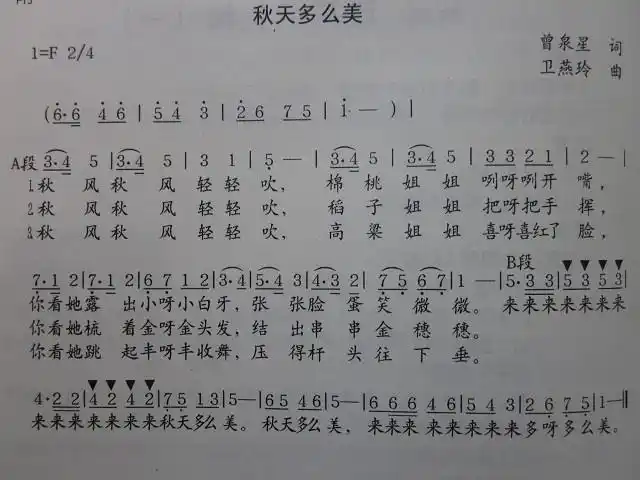 秋天多么美
1=F 2/4
曾泉星 词
卫燕玲 曲
(6·6 4 6 | 5 4 3 | 2 6 7 5 | 1 — ) |
A段 3·4 5 | 3·4 5 | 3 1 | 5 — | 3·4 5 | 3·4 5 | 3 3 2 1 | 2 — |
1秋 风 秋 风 轻 轻 吹, 棉 桃 姐 姐 咧呀咧开 嘴,
2秋 风 秋 风 轻 轻 吹, 稻 子 姐 姐 把呀把手 挥,
3秋 风 秋 风 轻 轻 吹, 高 粱 姐 姐 喜呀喜红了 脸,
B段
7·1 2 | 7·1 2 | 6 7 1 2 | 3·4 | 5·4 3 | 4·3 2 | 7 5 6 7 | 1 — | 5·3 3 | 5 3 5 3 |
你看她露 出小呀小白牙, 张 张脸 蛋 笑 微微。 来来来来来来来
你看她梳 着金呀金头发, 结 出串 串 金 穗穗。
你看她跳 起丰呀丰收舞, 压 得杆 头 往 下 垂。
4·2 2 | 4 2 4 2 | 7 5 1 3 | 5 — | 6 5 4 6 | 5 — | 6 6 6 4 6 | 5 5 4 3 | 2 6 7 5 | 1 — ‖
来来来来来来来秋天多么 美。 秋天多么 美, 来来来 来来来来来多呀多么美。